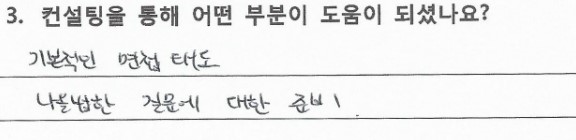 3. 컨설팅을 통해 어떤 부분이 도움이 되셨나요?
기본적인 면접 태도
나올법한 질문에 대한 준비